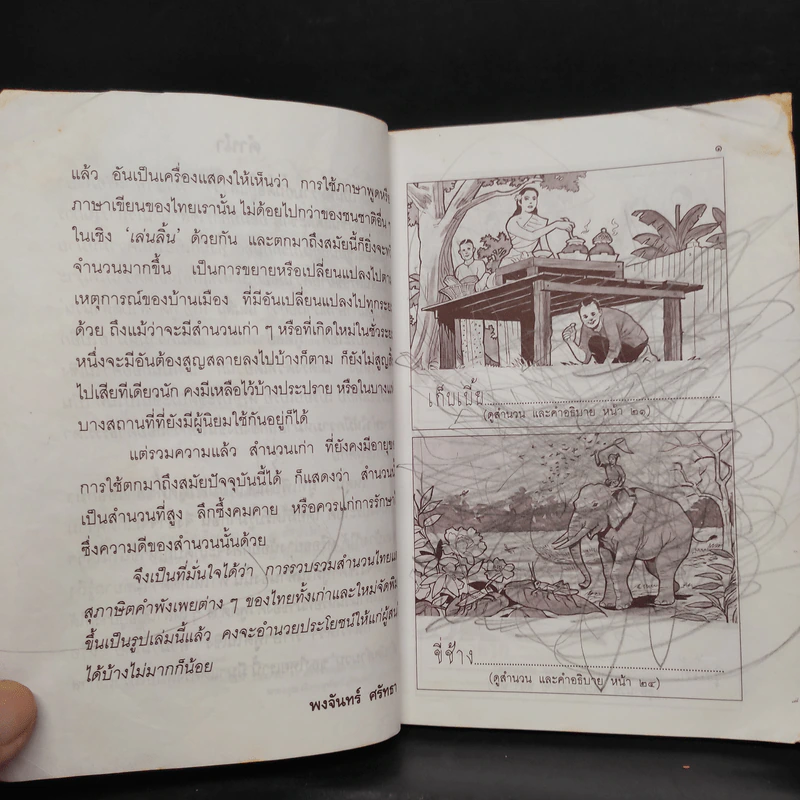 แล้ว อันเป็นเครื่องแสดงให้เห็นว่า การใช้ภาษาพูดหรือ
ภาษาเขียนของไทยเรานั้น ไม่ด้อยไปกว่าของชนชาติอื่น ๆ
ในเชิง ‘เล่นลิ้น’ ด้วยกัน และตกมาถึงสมัยนี้ก็ยิ่งจะ
จำนวนมากขึ้น เป็นการขยายหรือเปลี่ยนแปลงไปตาม
เหตุการณ์ของบ้านเมือง ที่มีอันเปลี่ยนแปลงไปทุกระยะ
ด้วย ถึงแม้ว่าจะมีสำนวนเก่า ๆ หรือที่เกิดใหม่ในชั่วระยะ
หนึ่งจะมีอันต้องสูญสลายลงไปบ้างก็ตาม ก็ยังไม่สูญ
ไปเสียทีเดียวนัก คงมีเหลือไว้บ้างประปราย หรือในบาง
บางสถานที่ที่ยังมีผู้นิยมใช้กันอยู่ก็ได้
แต่รวมความแล้ว สำนวนเก่า ที่ยังคงมีอายุ
การใช้ตกมาถึงสมัยปัจจุบันนี้ได้ ก็แสดงว่า สำนวน
เป็นสำนวนที่สูง ลึกซึ้งคมคาย หรือควรแก่การรักษา
ซึ่งความดีของสำนวนนั้นด้วย
จึงเป็นที่มั่นใจได้ว่า การรวบรวมสำนวนไทย
สุภาษิตคำพังเพยต่าง ๆ ของไทยทั้งเก่าและใหม่จัดพิมพ์
ขึ้นเป็นรูปเล่มนี้แล้ว คงจะอำนวยประโยชน์ให้แก่ผู้สน
ได้บ้างไม่มากก็น้อย
พงจันทร์ ศรัทธา
๑
เก็บเบี้ย
(ดูสำนวน และคำอธิบาย หน้า ๒๑)
ขี่ช้าง
(ดูสำนวน และคำอธิบาย หน้า ๒๔)